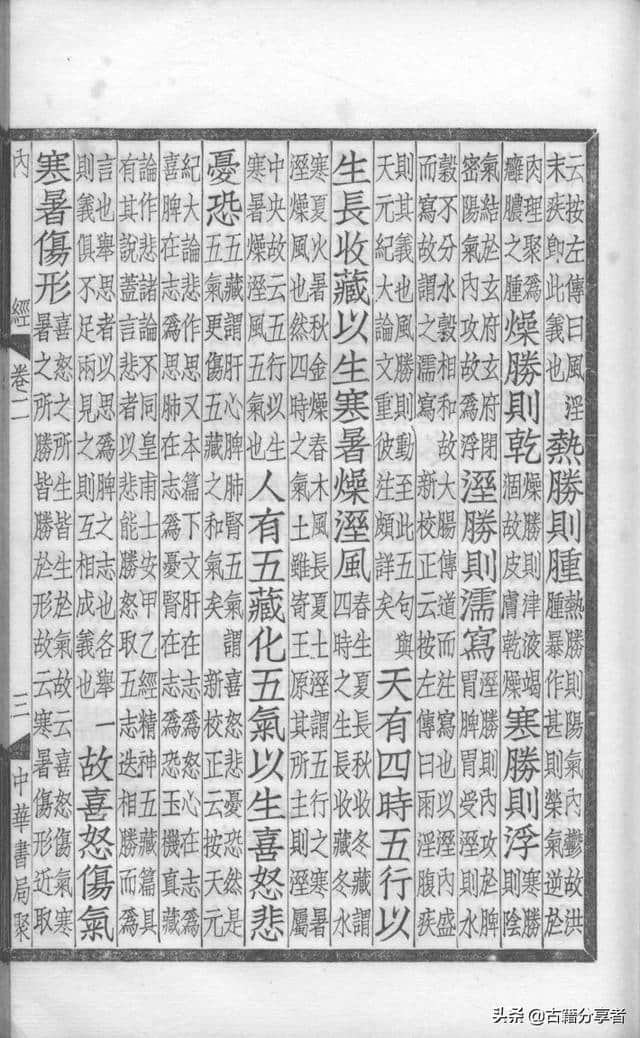 云按左傳曰風淫
末疾卽此義也
熱勝則腫
熱勝則陽氣內鬱故洪
腫暴作甚則榮氣逆於
肉理聚爲
癰膿之腫
燥勝則乾
燥勝則津液竭
涸故皮膚乾燥
寒勝則浮
寒勝
則陰
氣結於玄府玄府閉
密陽氣內攻故爲浮
溼勝則濡寫
溼勝則內攻於脾
胃脾胃受溼則水
穀不分水穀相和故大腸傳道而注寫也以溼內盛
而寫故謂之濡寫 新校正云按左傳曰雨淫腹疾
則其義也風勝則動至此五句與
天元紀大論文重彼注頗詳矣
天有四時五行以
生長收藏以生寒暑燥溼風
春生夏長秋收冬藏謂
四時之生長收藏冬水
寒夏火暑秋金燥春木風長夏土溼謂五行之寒暑
溼燥風也然四時之氣土雖寄王原其所主則溼屬
中央故云五行以生
寒暑燥溼風五氣也
人有五藏化五氣以生喜怒悲
憂恐
五藏謂肝心脾肺腎五氣謂喜怒悲憂恐然是
五氣更傷五藏之和氣矣 新校正云按天元
紀大論悲作思又本篇下文肝在志爲怒心在志爲
喜脾在志爲思肺在志爲憂腎在志爲恐玉機真藏
論作悲諸論不同皇甫士安甲乙經精神五藏篇具
有其說蓋言悲者以悲能勝怒取五志迭相勝而爲
言也舉思者以思爲脾之志也各舉一
則義俱不足兩見之則互相成義也
故喜怒傷氣
寒暑傷形
喜怒之所生皆生於氣故云喜怒傷氣寒
暑之所勝皆勝於形故云寒暑傷形近取
內經 卷二 三 中華書局聚
头条 @古籍分享者